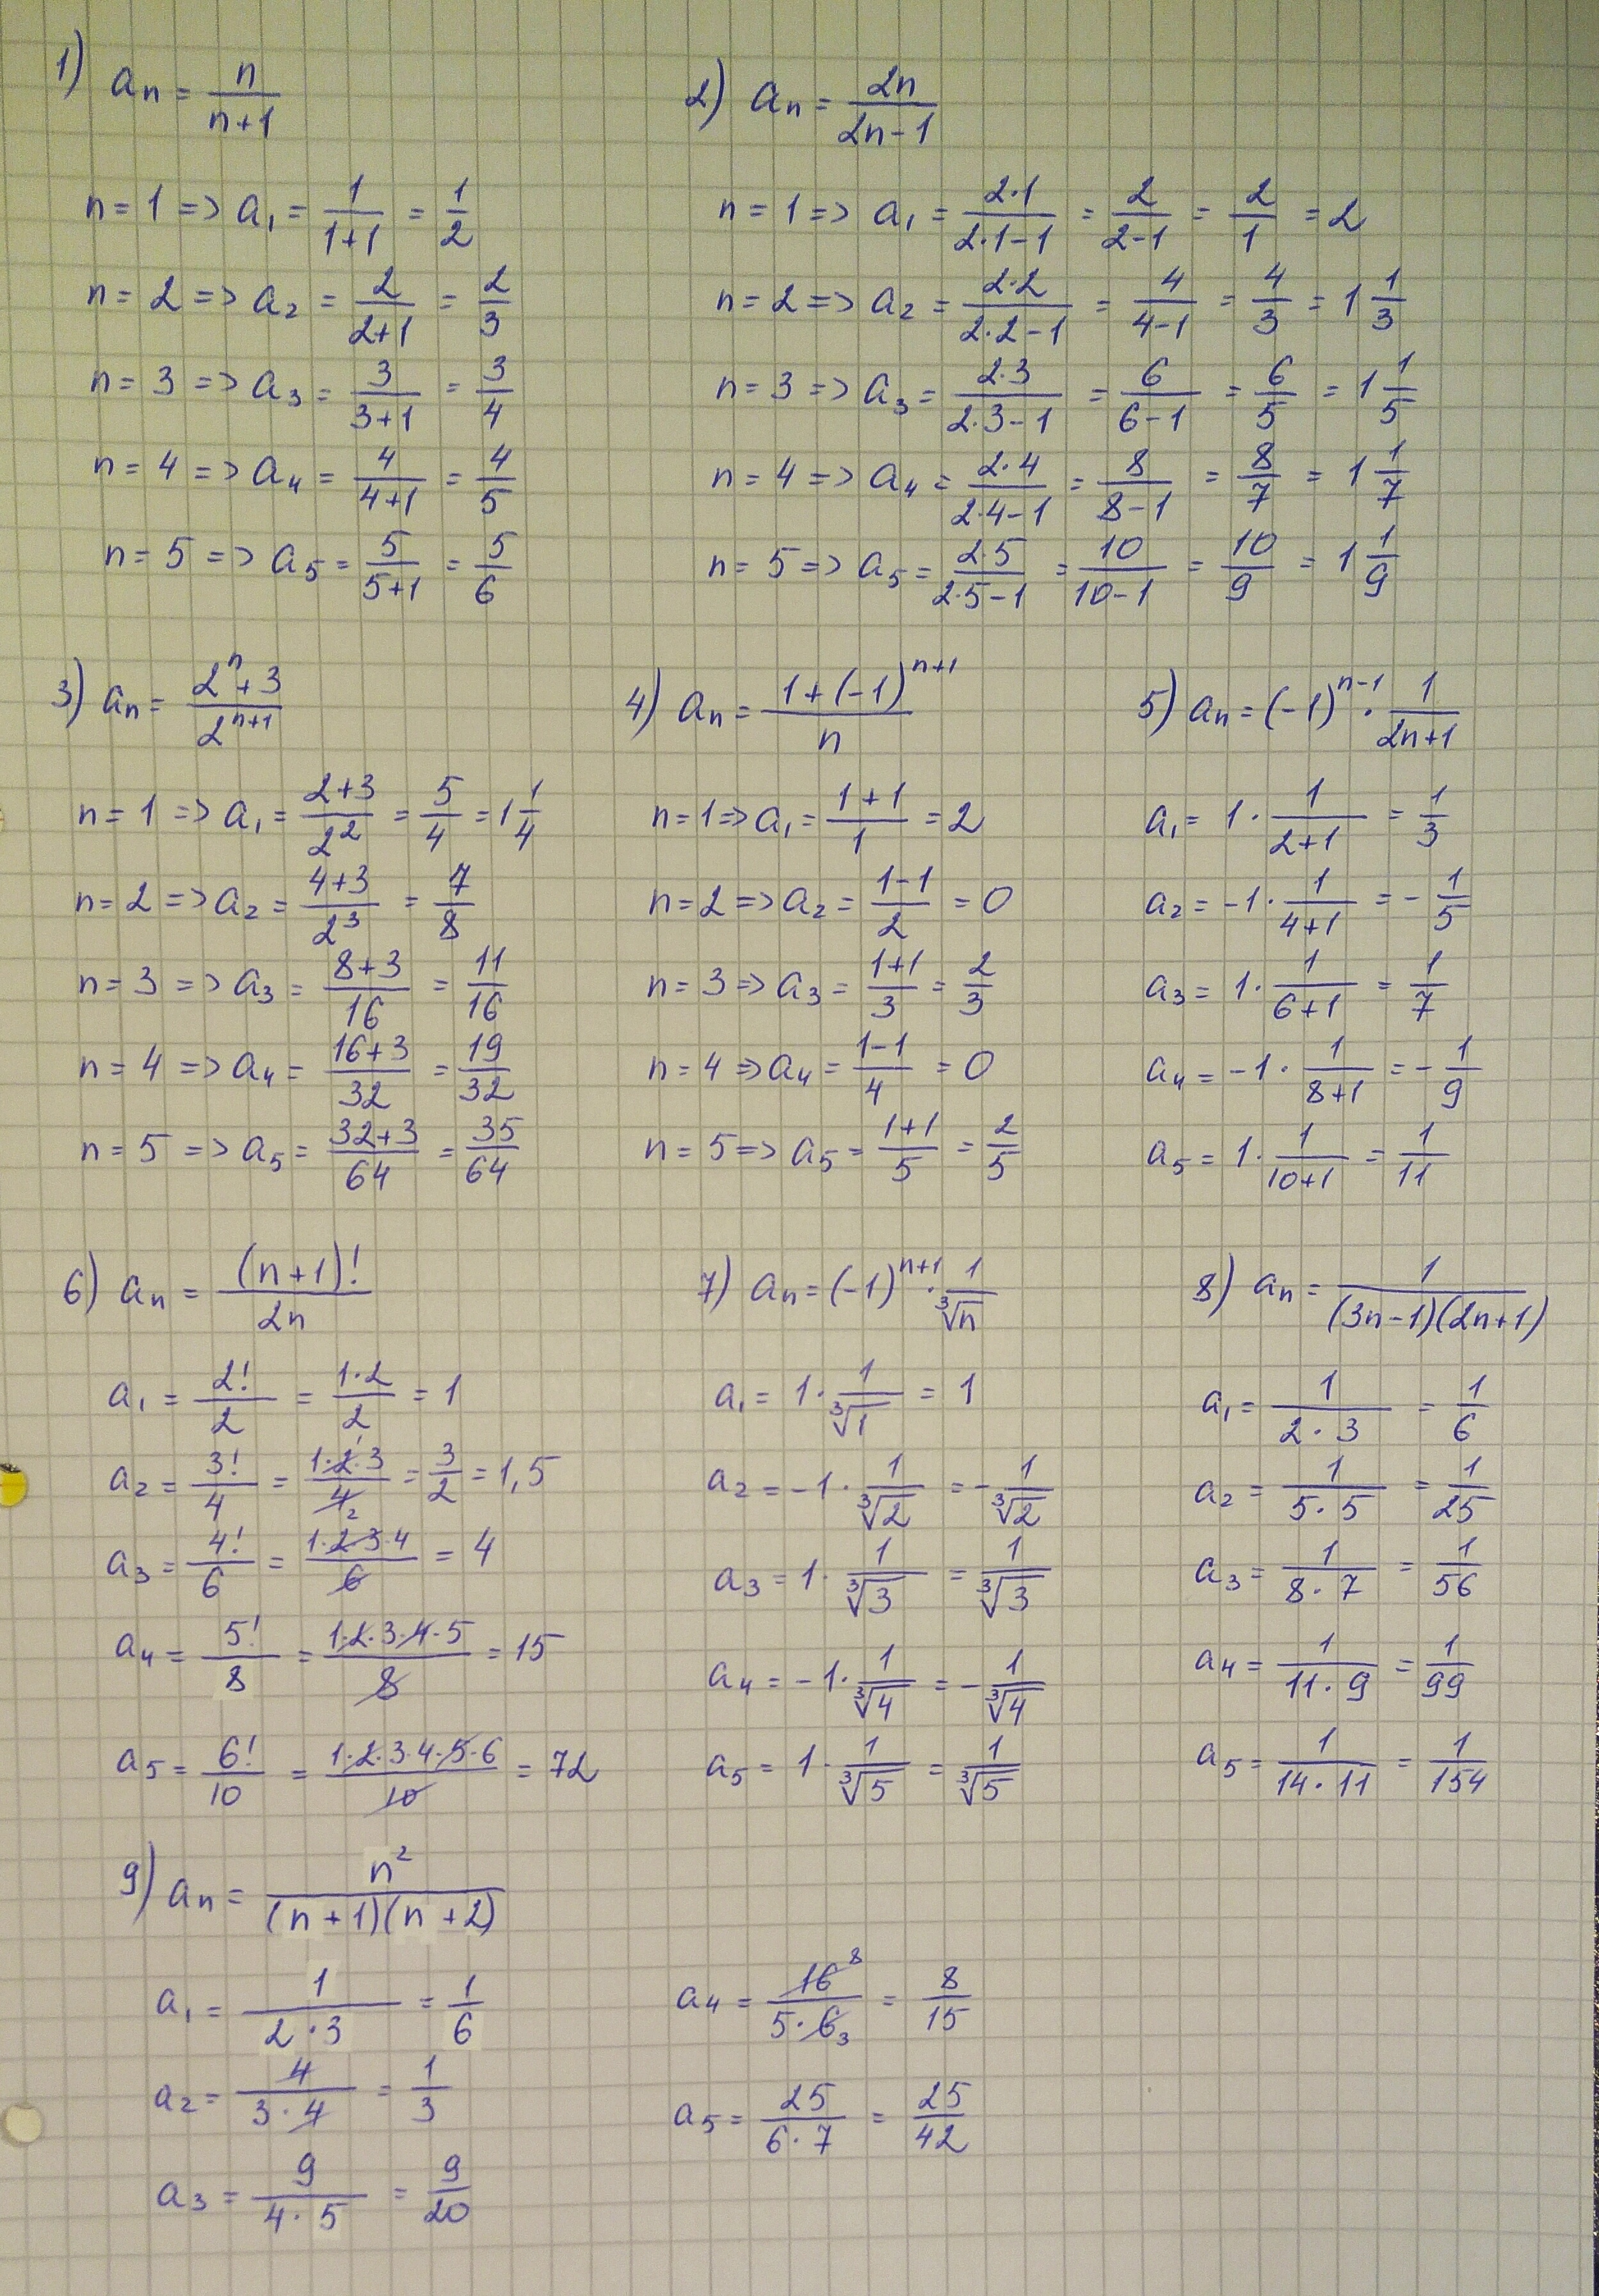 1) aₙ = n/(n+1)
n = 1 => a₁ = 1/(1+1) = 1/2
n = 2 => a₂ = 2/(2+1) = 2/3
n = 3 => a₃ = 3/(3+1) = 3/4
n = 4 => a₄ = 4/(4+1) = 4/5
n = 5 => a₅ = 5/(5+1) = 5/6
2) aₙ = 2n/(2n-1)
n = 1 => a₁ = 2·1/(2·1-1) = 2/(2-1) = 2/1 = 2
n = 2 => a₂ = 2·2/(2·2-1) = 4/(4-1) = 4/3 = 1 1/3
n = 3 => a₃ = 2·3/(2·3-1) = 6/(6-1) = 6/5 = 1 1/5
n = 4 => a₄ = 2·4/(2·4-1) = 8/(8-1) = 8/7 = 1 1/7
n = 5 => a₅ = 2·5/(2·5-1) = 10/(10-1) = 10/9 = 1 1/9
3) aₙ = (2ⁿ+3)/2ⁿ⁺¹
n = 1 => a₁ = (2+3)/2² = 5/4 = 1 1/4
n = 2 => a₂ = (4+3)/2³ = 7/8
n = 3 => a₃ = (8+3)/16 = 11/16
n = 4 => a₄ = (16+3)/32 = 19/32
n = 5 => a₅ = (32+3)/64 = 35/64
4) aₙ = (1+(-1)ⁿ⁺¹)/n
n = 1 => a₁ = (1+1)/1 = 2
n = 2 => a₂ = (1-1)/2 = 0
n = 3 => a₃ = (1+1)/3 = 2/3
n = 4 => a₄ = (1-1)/4 = 0
n = 5 => a₅ = (1+1)/5 = 2/5
5) aₙ = (-1)ⁿ⁻¹ · 1/(2n+1)
a₁ = 1 · 1/(2+1) = 1/3
a₂ = -1 · 1/(4+1) = -1/5
a₃ = 1 · 1/(6+1) = 1/7
a₄ = -1 · 1/(8+1) = -1/9
a₅ = 1 · 1/(10+1) = 1/11
6) aₙ = (n+1)!/2n
a₁ = 2!/2 = 1·2/2 = 1
a₂ = 3!/4 = 1·2·3/4 = 3/2 = 1,5
a₃ = 4!/6 = 1·2·3·4/6 = 4
a₄ = 5!/8 = 1·2·3·4·5/8 = 15
a₅ = 6!/10 = 1·2·3·4·5·6/10 = 72
7) aₙ = (-1)ⁿ⁺¹ · 1/∛n
a₁ = 1 · 1/∛1 = 1
a₂ = -1 · 1/∛2 = -1/∛2
a₃ = 1 · 1/∛3 = 1/∛3
a₄ = -1 · 1/∛4 = -1/∛4
a₅ = 1 · 1/∛5 = 1/∛5
8) aₙ = 1/((3n-1)(2n+1))
a₁ = 1/(2·3) = 1/6
a₂ = 1/(5·5) = 1/25
a₃ = 1/(8·7) = 1/56
a₄ = 1/(11·9) = 1/99
a₅ = 1/(14·11) = 1/154
9) aₙ = n²/((n+1)(n+2))
a₁ = 1/(2·3) = 1/6
a₂ = 4/(3·4) = 1/3
a₃ = 9/(4·5) = 9/20
a₄ = 16 8/(5·6 3) = 8/15
a₅ = 25/(6·7) = 25/42